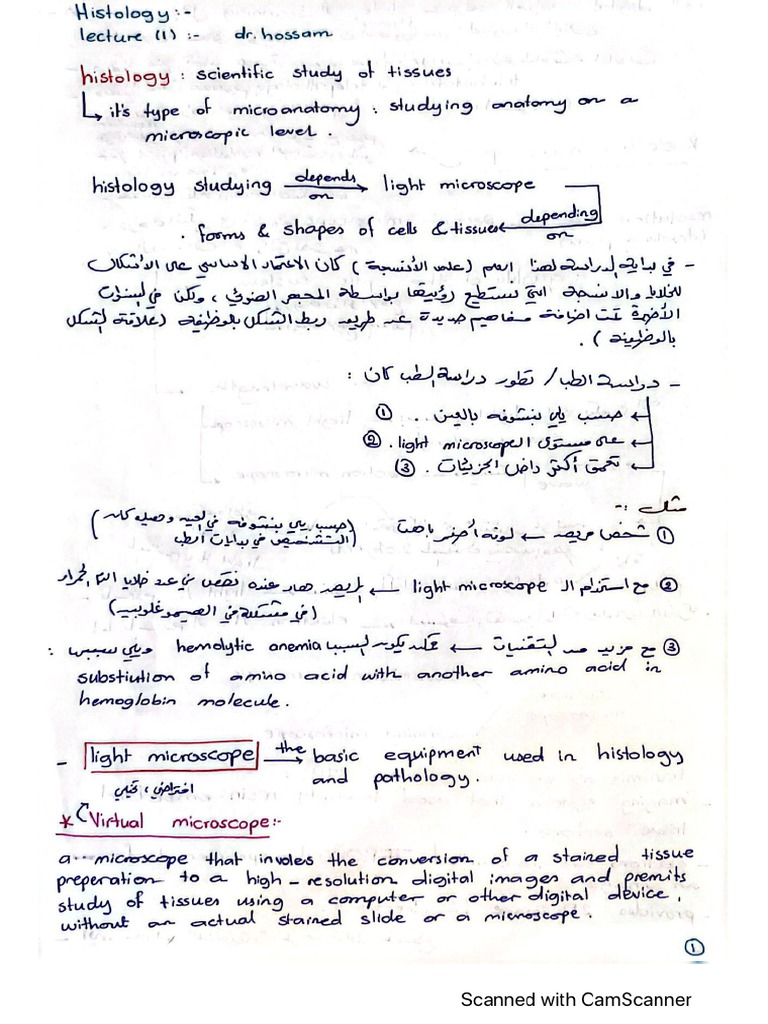 Histology:-
lecture (1) :- dr.hossam
histology : scientific study of tissues
↳ it's type of microanatomy : studying anatomy on a
microscopic level .
histology studying depends on → light microscope
depending on
. forms & shapes of cells & tissues
- في بداية دراسة هذا العلم (علم الأنسجة) كان الاعتماد الأساسي على الأشكال
للخلايا والأنسجة التي نستطيع رؤيتها بواسطة المجهر الضوئي ، ولكن في السنوات
الأخيرة تمت اضافة مفاهيم جديدة عن طريق ربط الشكل بالوظيفة (علاقة الشكل
بالوظيفة) .
- دراسة الطب / تطور دراسة الطب كان :
← حسب يلي بنشوفه بالعين . . ①
← على مستوى ال light microscope . ②
← تعمق أكثر داخل الجزيئات . ③
مثل :-
① شخص مريض ← لونه أصفر باهت (حسب يلي بنشوفه في العين وهيك كان
التشخيص في بدايات الطب)
② مع استخدام ال light microscope ← المريض عنده نقص في عدد خلايا الدم الحمراء
(في مشكلة في الهيموغلوبين)
③ مع مزيد من التقنيات ← ممكن يكون السبب hemolytic anemia ويلي سببها :
substiution of amino acid with another amino acid in
hemoglobin molecule .
- light microscope the → basic equipment used in histology
and pathology .
افتراضي ، تخيلي
* Virtual microscope:-
a microscope that involes the conversion of a stained tissue
preperation to a high-resolution digital images and premits
study of tissues using a computer or other digital device,
without an actual stained slide or a microscope .
①
Scanned with CamScanner